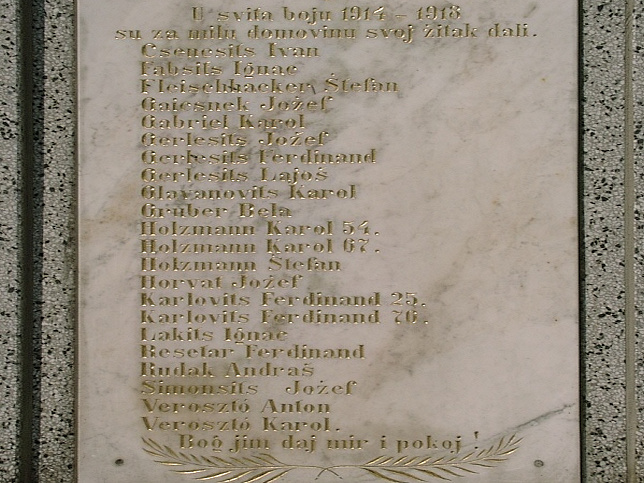 U svita boju 1914 - 1918
su za milu domovinu svoj žitak dali.
Csencsits Ivan
Fabsits Ignac
Fleischhacker Štefan
Gaicsnek Jožef
Gabriel Karol
Gerlesits Jožef
Gerlesits Ferdinand
Gerlesits Lajoš
Glavanovits Karol
Gruber Bela
Holzmann Karol 54.
Holzmann Karol 67.
Holzmann Štefan
Horvat Jožef
Karlovits Ferdinand 25.
Karlovits Ferdinand 76.
Lakits Ignac
Resetar Ferdinand
Rudak Andraš
Simonsits Jožef
Verosztó Anton
Verosztó Karol.
Bog jim daj mir i pokoj!